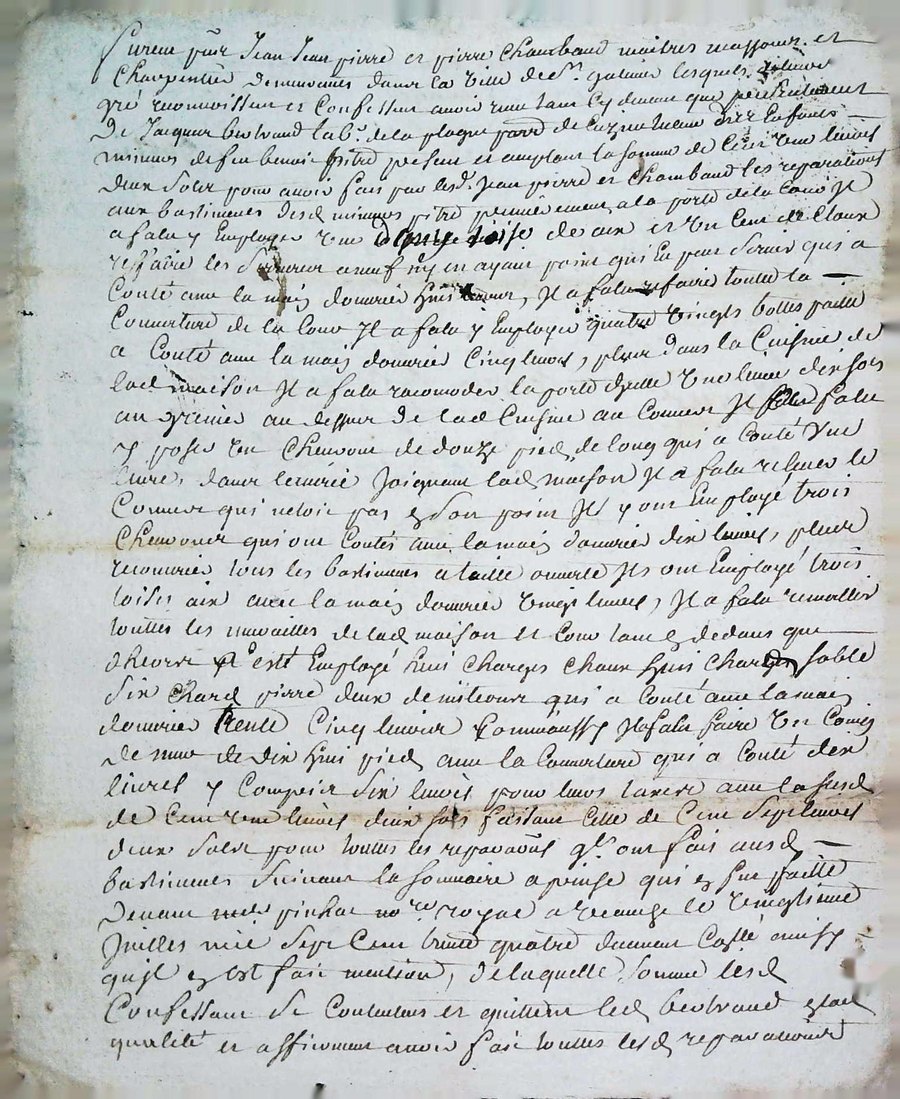 Furent pnts Jean Jean pierre et pierre Chambaud maitres massons et
Charpentier demeurants dans la ville de St galmier lesquels de leur
gré reconnoissent et Confessent avoir reçu tant cy devant que presentement
De Jacques bertrand labr. de la plagne parre de Cuzieu tuteur des Enfants
mineurs de feu benoit pitre present et acceptant la somme de Cent une livres
deux Sols pour avoir fait par lesd. Jean pierre et Chambaud les reparations
aux bastiments desd mineurs pitre premierement a la porte de la Cour Il
a falu y Employer une toise de aix et un Cent de Cloux
reffaire les Serrures a neuf ny en ayant point qui Eu peu Servir qui a
Couté avec la main douvrier huit livres, Il a falu refaire toute la
Couverture de la Cour Il a falu y Employer quatre vingts bottes paille
a Couté avec la main douvrier Cinq livres, plus dans la Cuisine de
lad maison Il a falu racomoder la porte dycelle une livre dix sols
au grenier au dessus de lad Cuisine au Couvert Il falu
y poser un Chevron de douze pied de long qui a Couté Une
livre, dans lecurie Joignant lad maison Il a falu relever le
Couvert qui netoit pas en Son point Ils y ont Employé trois
Chevrons qui ont Coutés avec la main douvrier dix livres, plus
recouvrir tous les bastiments a taille ouverte Ils ont Employé trois
toises aix avec la main douvrier vingt livres, Il a falu remailler
touttes les murailles de lad maison et Cour tant dedans que
dheors Employé huit Charges Chaux huit Charges sable
Six Chard pierre deux qui a Couté avec la main
douvrier trente Cinq livres Comme aussy Il a falu faire un Coing
de mur de dix huit pied avec la Couverture qui a Couté dix
livres y Compris Six livres pour leurs avec la susd
de Cent une livres deux sols faisant Celle de Cent Sept livres
deux Sols pour touttes les reparaõns qls ont fait ausd
bastiments Suivant la Sommaire a prise qui en fut faitte
Devant pinhac nore royal a le vingtieme
Juillet mil Sept Cent trente quatre ainsy
quil en est fait mention, de laquelle Somme lesd
Confessent Se Contenter et quittent led bertrand esd
qualité et affirment avoir fait touttes lesd reparations